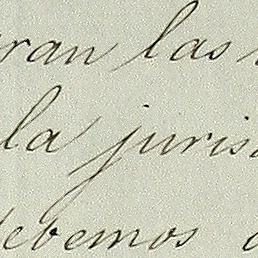 ran las
la juris
debemos